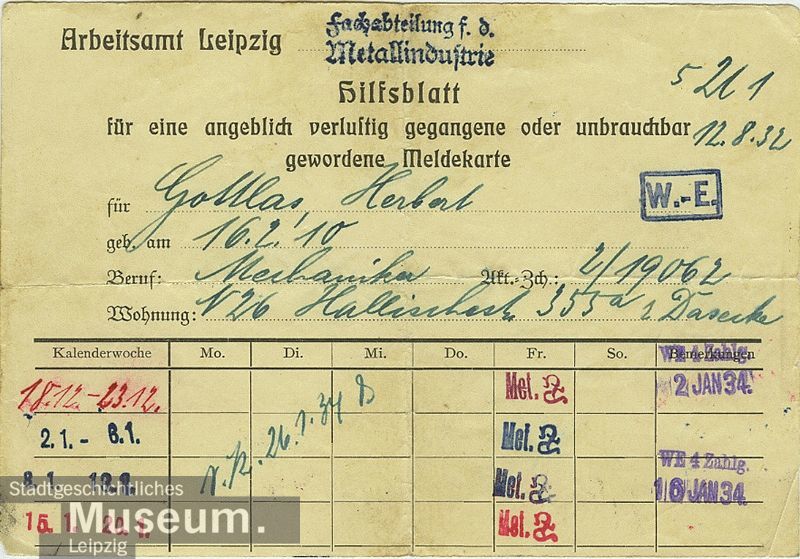 Arbeitsamt Leipzig
Fachabteilung f. d.
Metallindustrie
Hilfsblatt
5 211
für eine angeblich verlustig gegangene oder unbrauchbar 12.8.32
gewordene Meldekarte
für Gottlas, Herbert
W.-E.
geb. am 16.2.'10
Beruf: Mechaniker Akt.-Zch.: 2/19062
Wohnung: N26 Hallischestr. 353a
Kalenderwoche Mo. Di. Mi. Do. Fr. So. Bemerkungen
WE 4 Zahlg.
18.12.-23.12. Met. 2 JAN 34.
2.1. - 6.1. Met.
26.1.34
WE 4 Zahlg.
8.1. 13.1. Met. 16 JAN 34.
15.1. 20.1. Met.
Stadtgeschichtliches
Museum.
Leipzig